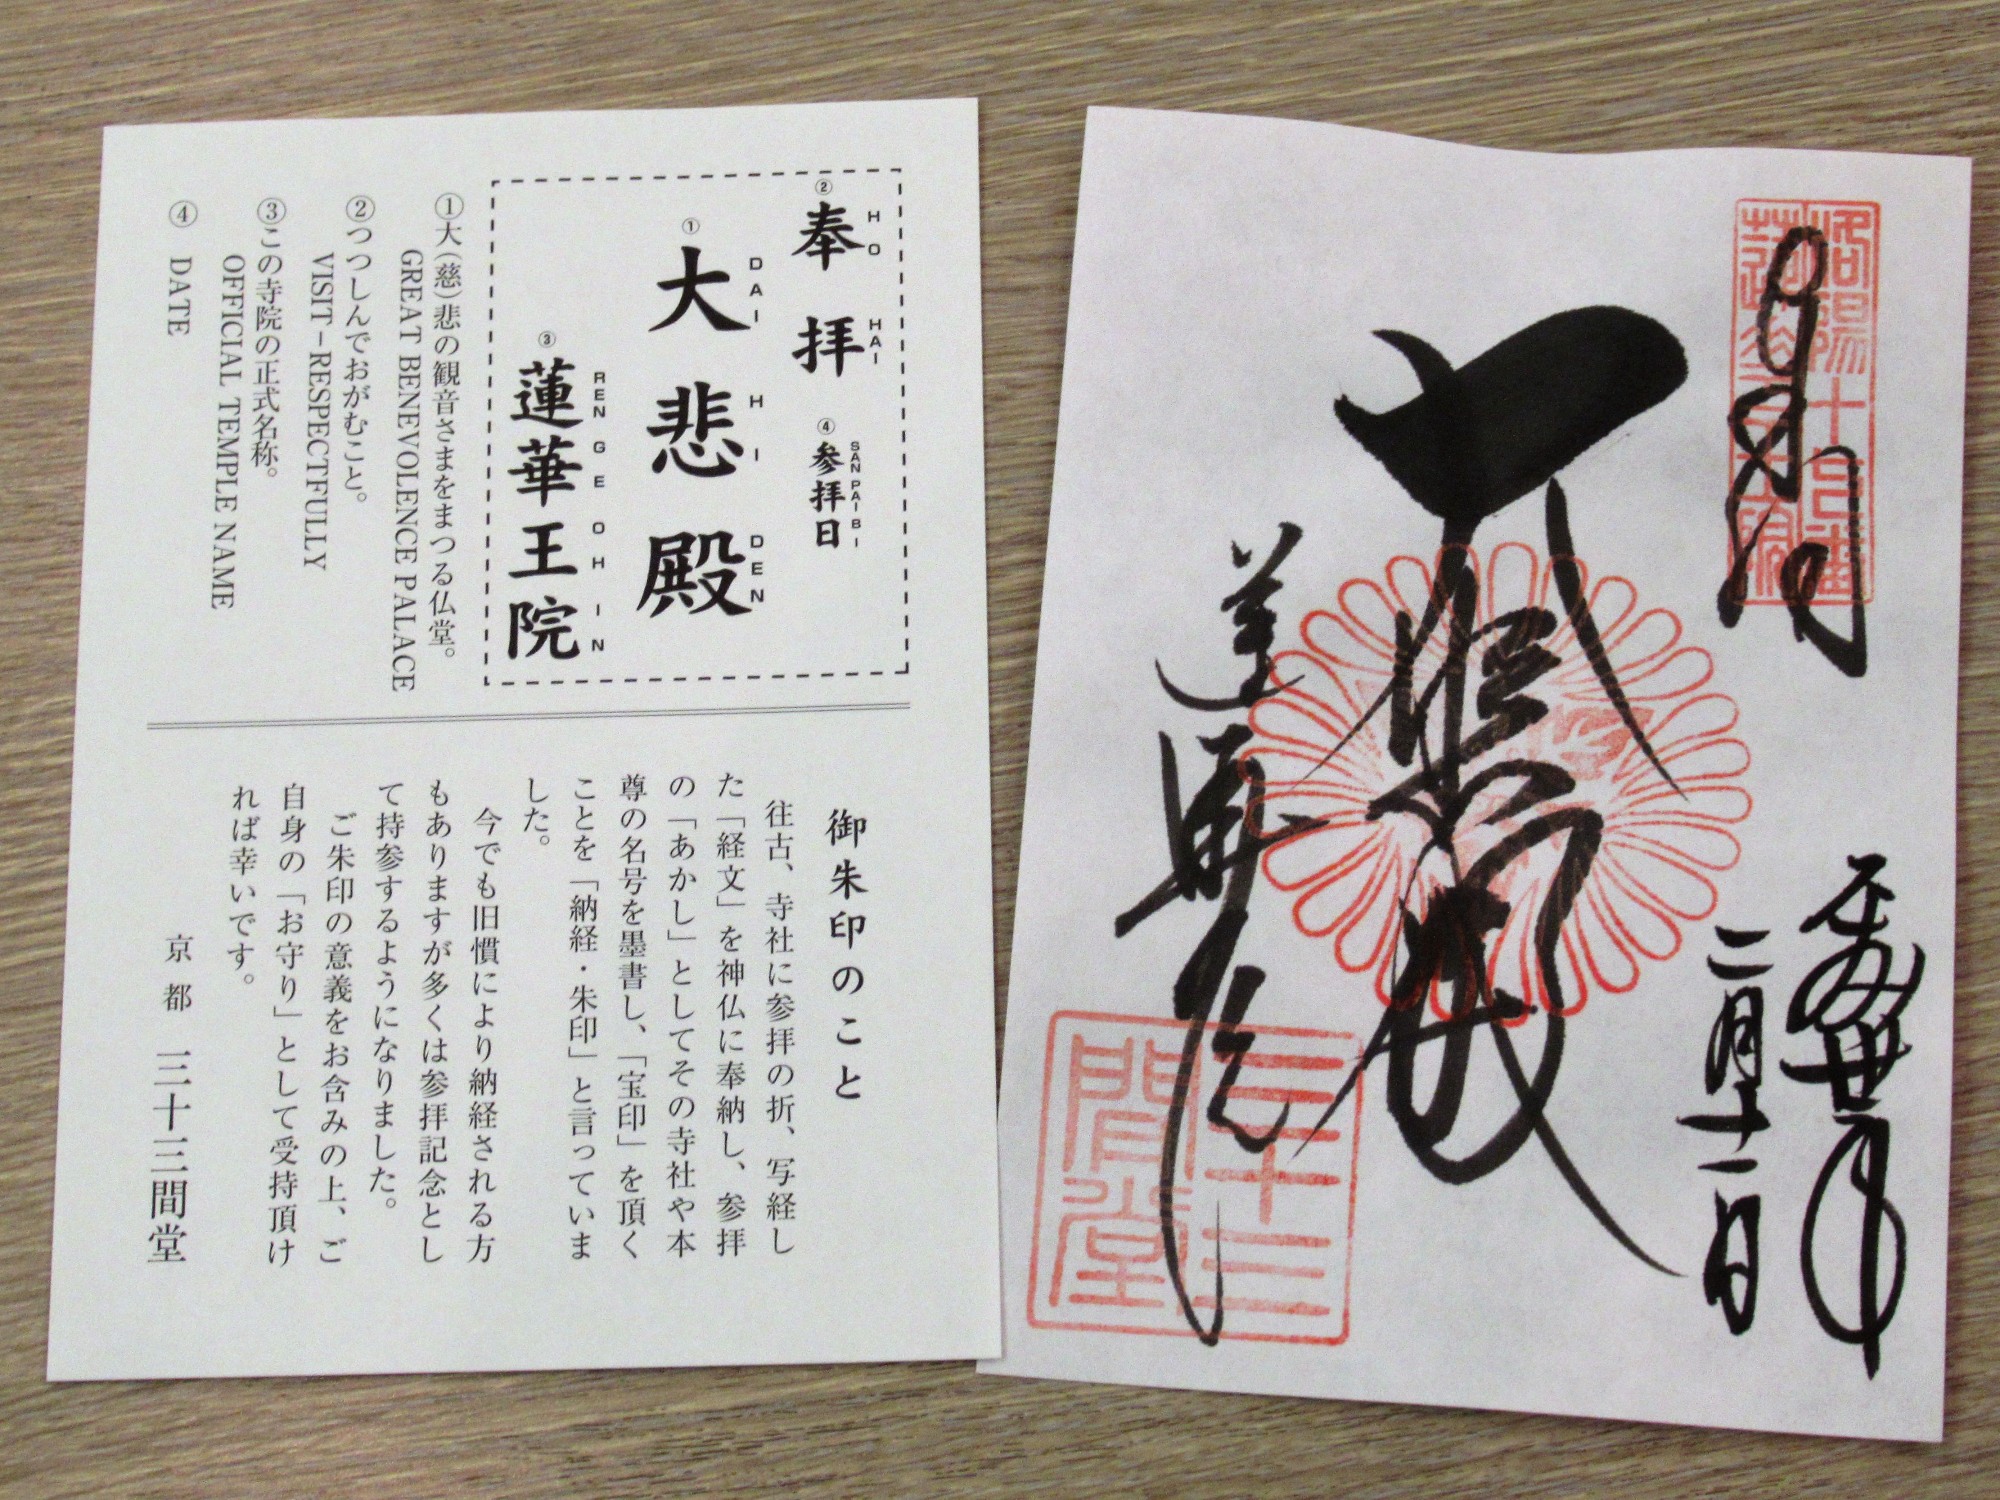 ②
奉拝
HO HAI
④
参拝日
SAN PAI BI
①
大悲殿
DAI HI DEN
③
蓮華王院
REN GE OH IN
①大(慈)悲の観音さまをまつる仏堂。
GREAT BENEVOLENCE PALACE
②つつしんでおがむこと。
VISIT－RESPECTFULLY
③この寺院の正式名称。
OFFICIAL TEMPLE NAME
④ DATE
御朱印のこと
往古、寺社に参拝の折、写経し
た「経文」を神仏に奉納し、参拝
の「あかし」としてその寺社や本
尊の名号を墨書し、「宝印」を頂く
ことを「納経・朱印」と言っていま
した。
今でも旧慣により納経される方
もありますが多くは参拝記念とし
て持参するようになりました。
ご朱印の意義をお含みの上、ご
自身の「お守り」として受持頂け
れば幸いです。
京都 三十三間堂
二月十一日
三十三
間堂